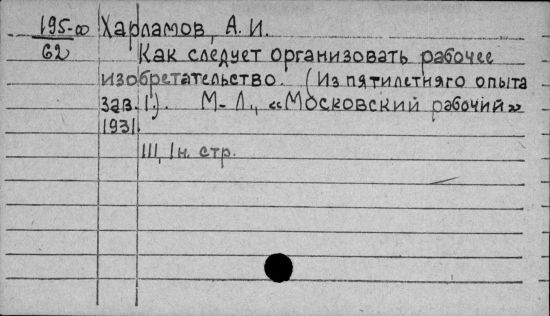 195-00 Харламов, А. И.
62 Как следует организовать рабочее
изобретательство. (Из пятилетняго опыта
зав. 1.). М-Л., «Московский рабочий»
1931.
III, 1н. стр.